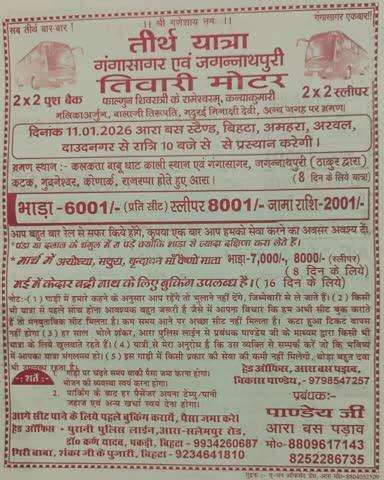 सब तीर्थ बार-बार !
।। श्री गणेशाय नमः ।।
गंगासागर एकबार!!
तीर्थ यात्रा
गंगासागर एवं जगन्नाथपुरी
तिवारी मोटर
2 x 2 पुश बैक
2 x 2 स्लीपर
फाल्गुन शिवरात्री के रामेश्वरम्, कन्याकुमारी
मल्लिकाअर्जुन, बालाजी तिरूपति, मदुरई मिनाक्षी देवी, अन्य जगह पर भ्रमण।
दिनांक 11.01.2026 आरा बस स्टैण्ड, बिहटा, अमहरा, अरवल,
दाउदनगर से रात्रि 10 बजे से से प्रस्थान करेगी।
भ्रमण स्थान :- कलकता बाबू घाट काली स्थान एवं गंगासागर, जगन्नाथपुरी (ठाकुर द्वारा)
कटक, भुवनेश्वर, कोणार्क, राजरप्पा होते हुए आरा। (8 दिन के लिये यात्रा)
भाड़ा-6001/- (प्रति सीट) स्लीपर 8001/- जामा राशि-2001/-
आप बहुत बार रेल से सफर किये होंगे, कृपया एक बार आप हमको सेवा करने का अवसर अवश्य दी
*पंडा या दलाल के चंगुल में न पड़े क्योंकि भाड़ा से ज्यादा दक्षिणा करा लेते हैं।
* मार्च में अयोध्या, मथुरा, वृन्दावन माँ वैष्णो माता भाड़ा-7,000/-, 8000/- (स्लीपर)
(8 दिन के लिये)
मई में केदार बद्री नाथ के लिए बुकिंग उपलब्ध है। (16 दिन के लिये)
नोट:-(1) गाड़ी में हमारे कहने के अनुसार आप रहेंगे तो भुलाने नहीं देंगे, जिम्मेवारी से ले जाते हैं। (2) किसी
भी यात्रा से पहले सोच होना आवश्यक बहुत जरूरी है जैसे में आपना विचार कि हम अभी सीट बुक कराते
हैं तो मनमुताबिक सीट मिलता है। कम समय आने पर अच्छा सीट नहीं मिलता है। कटा हुआ टिकट वापस
नहीं होगा (3) हर साल भोले शंकर, आरा पुलिस लाईन से प्रबंधक पाण्डेय जी के माध्यम द्वारा किसी भी
यात्रा के लिये खुलवाते रहते हैं। (4) यात्री से मेरा अनुरोध है कि उस व्यक्ति से सम्पर्क करें जो कि भविष्य
में आपका यात्रा मंगलमय हो। (5) इस गाड़ी में किसी प्रकार की सेवा की कमी नहीं मिलेगी, थोड़ा बहुत दवा
भी उपलब्ध रहता है।
-: शर्तें :-
गाड़ी पर चढ़ते समय बाकी पैसा जमा करना होगा।
भोजन की व्यवस्था स्वयं करना होगा।
2. पार्किंग के बाद हर पैसेंजर अपना टेम्पू/पानी
जहाज एवं अन्य खर्चा स्वयं देना होगा।
हेड ऑफिस, आरा बस पड़ाव,
विकास पाण्डेय,- 9798547257
प्रबंधक:-
आगे सीट पाने के लिये पहले बुकिंग करायें, पैसा जमा करे!
हेड ऑफिस - पुरानी पुलिस लाईन, आरा-सलेमपुर रोड,
डॉ० कर्ण यादव, पकड़ी, बिहटा - 9934260687
गिरी बाबा, शंकर जी के पुजारी, बिहटा- 9234641810
पाण्डेय जी
आरा बस पड़ाव
मो०-8809617143
8252286735